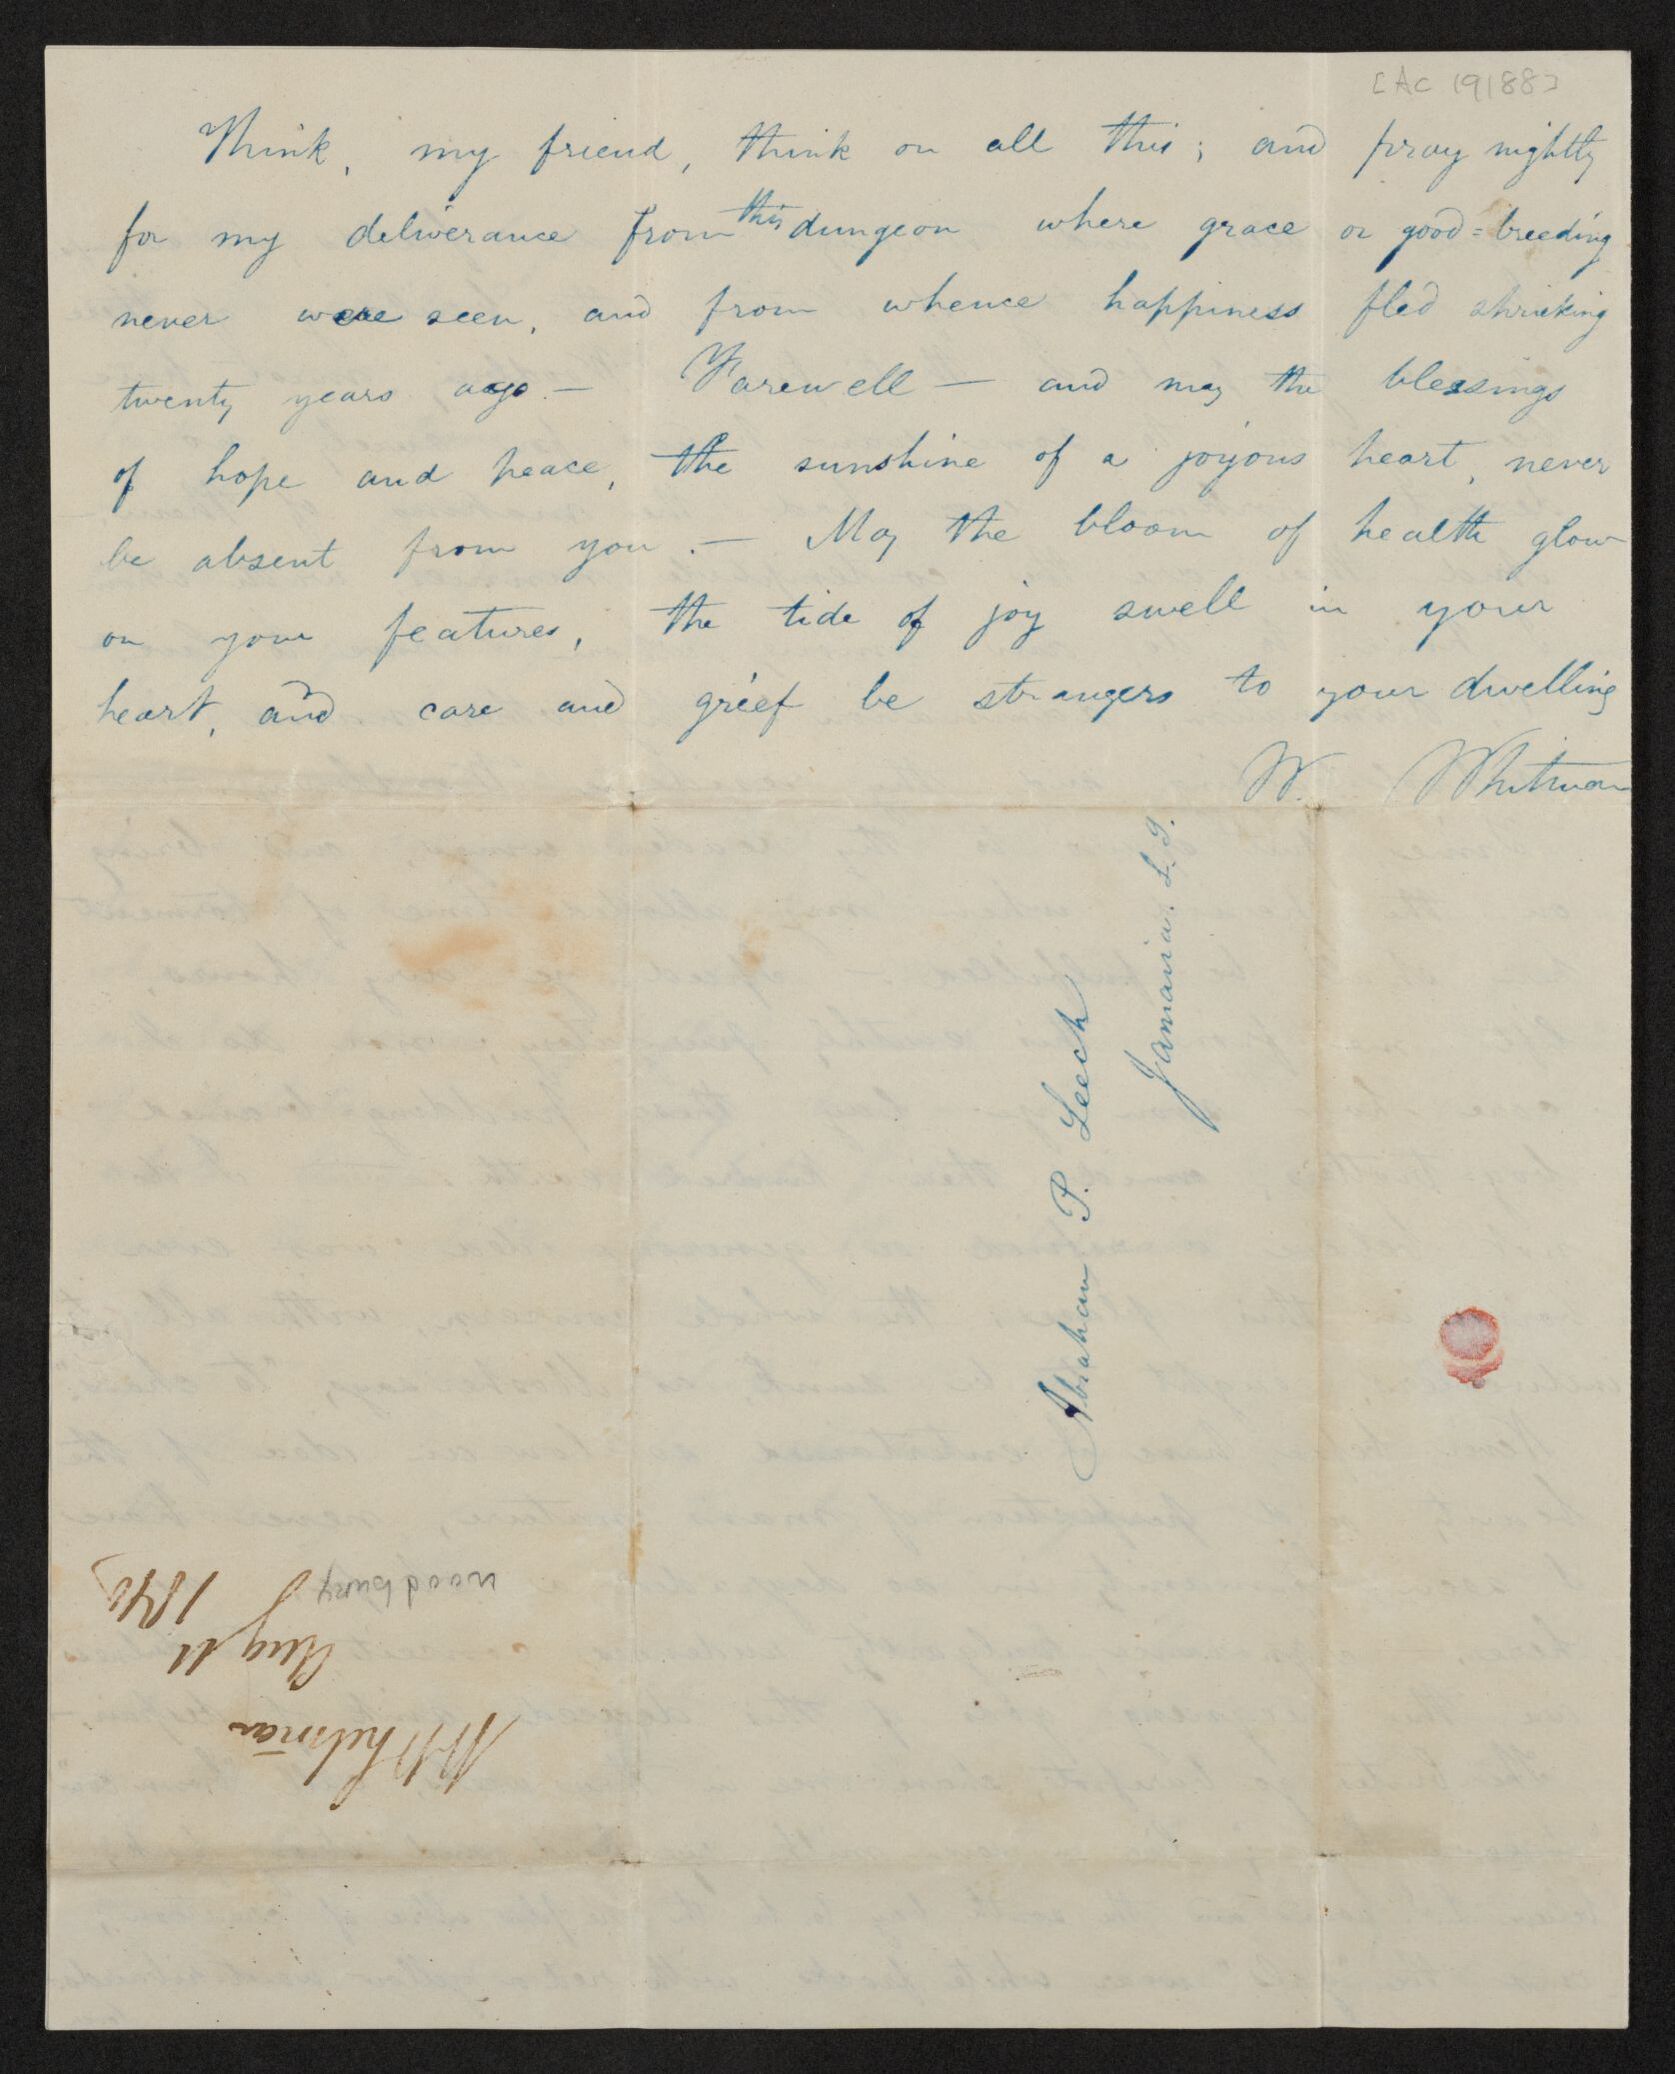 [AC 19188]
Think, my friend, think on all this; and pray nightly
for my deliverance from this dungeon where grace or good=breeding
never were seen, and from whence happiness fled shrieking
twenty years ago.— Farewell — and may the blessings
of hope and peace, the sunshine of a joyous heart, never
be absent from you.— May the bloom of health glow
on your features, the tide of joy swell in your
heart, and care and grief be strangers to your dwelling
W. Whitman
Abraham P. Leech
Jamaica. L. I.
W Whitman
Aug 11
1840
Woodbury